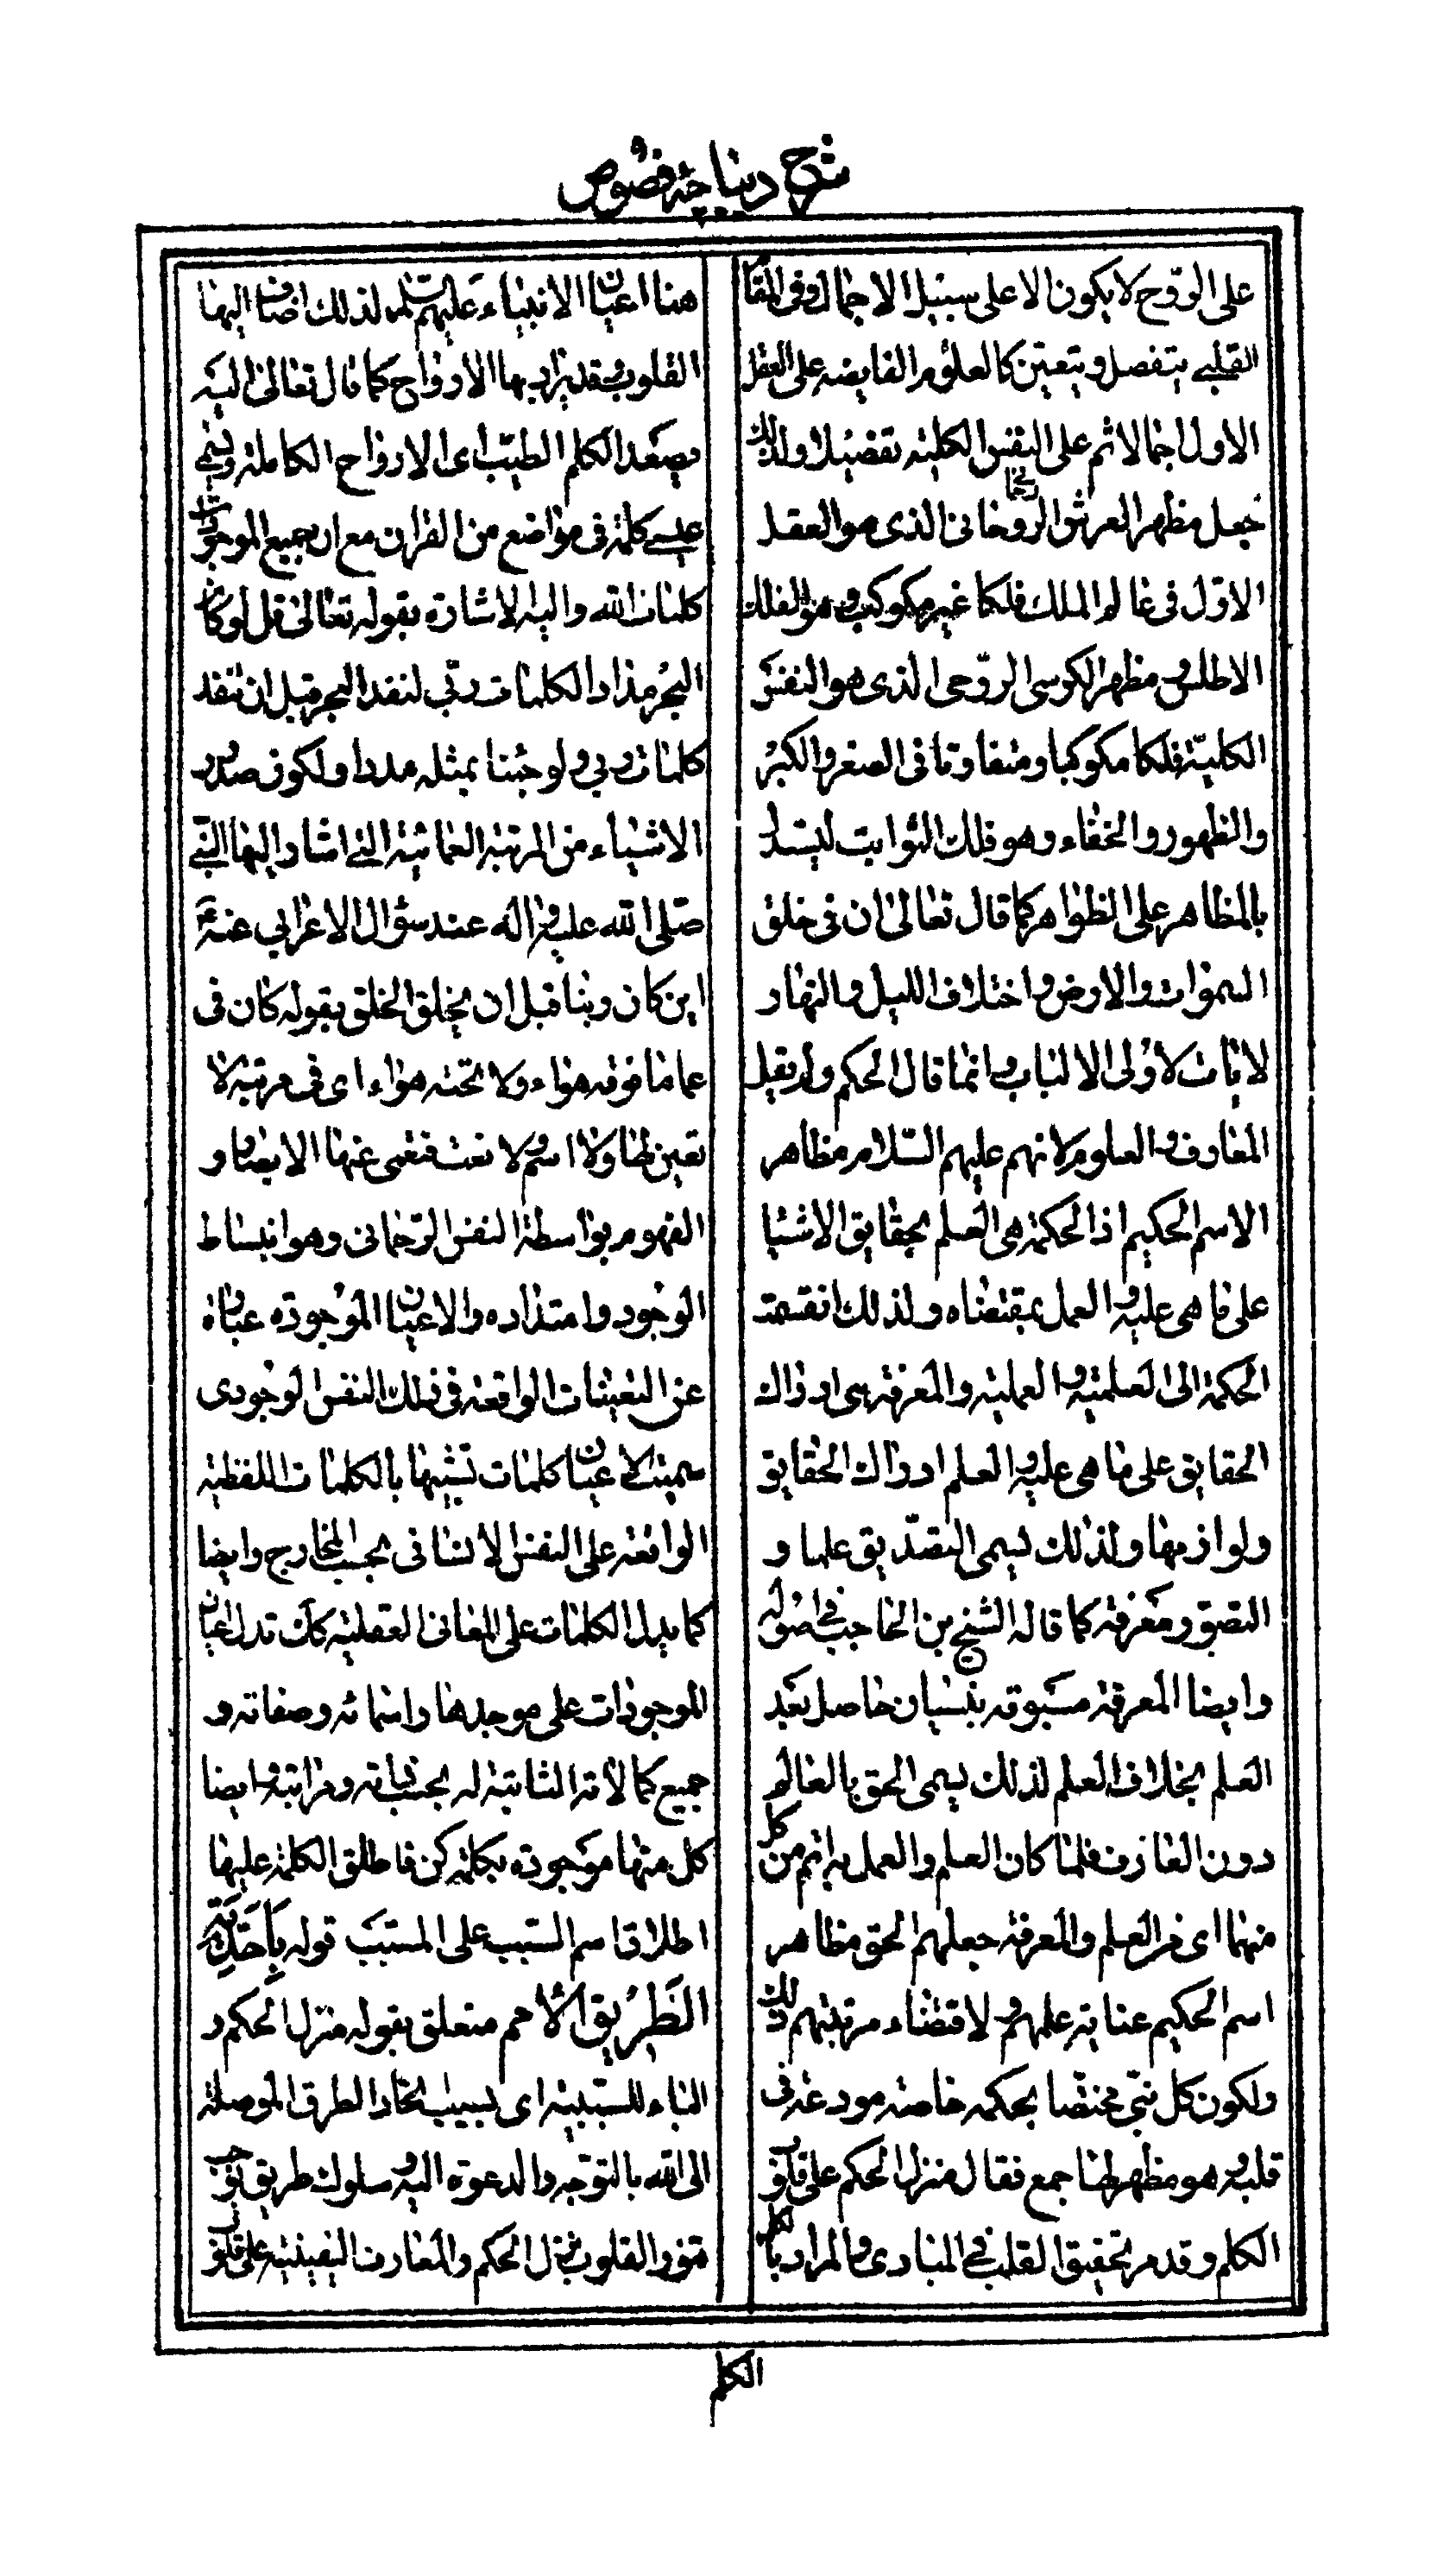 شرح ديباجة فصوص
على الروح لا يكون الا على سبيل الاجمال وفى المقام
القلبى يتفصل و يتعين كالعلوم الفايضه على العقل
الاول اجمالا ثم على النفس الكلية تفصيلا ولذلك
جعل مظهر العرش الروحانى الذى هو العقل
الاول فى عالم الملك فلكا غير مكوكب و هو الفلك
الاطلس و مظهر الكرسى الروحى الذى هو النفس
الكلية فلكا مكوكبا و متفاوتا فى الصغر والكبر
والظهور والخفاء وهو فلك الثوابت ليستدل
بالمظاهر على الظواهر كما قال تعالى ان فى خلق
السموات والارض واختلاف الليل والنهار
لايات لاولى الالباب وانما قال الحكم ولم يقل
المعارف و العلوم لانهم عليهم السلام مظاهر
الاسم الحكيم اذ الحكمة هى العلم بحقايق الاشيا
على ما هى عليه و العمل بمقتضاه ولذلك انقسمت
الحكمة الى العلمية و العملية والمعرفة هى ادراك
الحقايق على ما هى عليه و العلم ادراك الحقايق
ولوازمها ولذلك يسمى التصديق علما و
التصور معرفة كما قاله الشيخ بن الحاجب فى اصوله
وايضا المعرفة مسبوقه بنسيان حاصل بعد
العلم بخلاف العلم لذلك يسمى الحق بالعالم
دون العارف فلما كان العلم والعمل به اتم من كل
منهما اى من العلم والمعرفة جعلهم الحق مظاهر
اسم الحكيم عناية عليهم و لاقتضاء مرتبتهم ذلك
ولكون كل نبى مختصا بحكمه خاصه مودعه فى
قلبه و هو مظهر لها جمع فقال منزل الحكم على قلوب
الكلم وقد مر تحقيق القلب فى المبادى والمراد بالكلم
هنا اعيان الانبياء عليهم السلم لذلك اضاف اليها
القلوب وقد يراد بها الارواح كما قال تعالى اليه
يصعد الكلم الطيب اى الارواح الكاملة ويسمى
عيسى كلمة فى مواضع من القران مع ان جميع الموجودات
كلمات الله واليه الاشارة بقوله تعالى قل لو كان
البحر مدادا لكلمات ربى لنفد البحر قبل ان تنفد
كلمات ربى و لو جئنا بمثله مددا ولكون صدور
الاشياء من المرتبة العمائية التى اشار اليها النبى
صلى الله عليه و اله عند سؤال الاعرابى عنه
اين كان ربنا قبل ان يخلق الخلق بقوله كان فى
عما ما فوقه هواء ولا تحته هواء اى فى مرتبة لا
تعين لها ولا اسم و لا نعت فتعمى عنها الابصار و
الفهوم بواسطة النفس الرحمانى وهو انبساط
الوجود وامتداده والاعيان الموجودة عبارة
عن التعينات الواقعه فى ذلك النفس الوجودى
سميت الاعيان كلمات تشبيها بالكلمات اللفظيه
الواقعة على النفس الانسانى بحسب المخارج وايضا
كما يدل الكلمات على المعانى العقلية كك تدل اعيان
الموجودات على موجدها واسمائه وصفاته و
جميع كمالاته الثابتة له بحسب ذاته ومراتبه و ايضا
كل منها موجودة بكلمة كن فاطلق الكلمة عليها
اطلاقا سم السبب على المسبب قوله بِاَحَدِيَّةِ
الطَّرِيقِ الاَمم متعلق بقوله منزل الحكم و
الباء للسببية اى بسبب اتحاد الطرق الموصلة
الى الله بالتوجه والدعوة اليه و سلوك طريق يوجب
تنور القلوب نزل الحكم والمعارف اليقينية على قلوب
الكلم